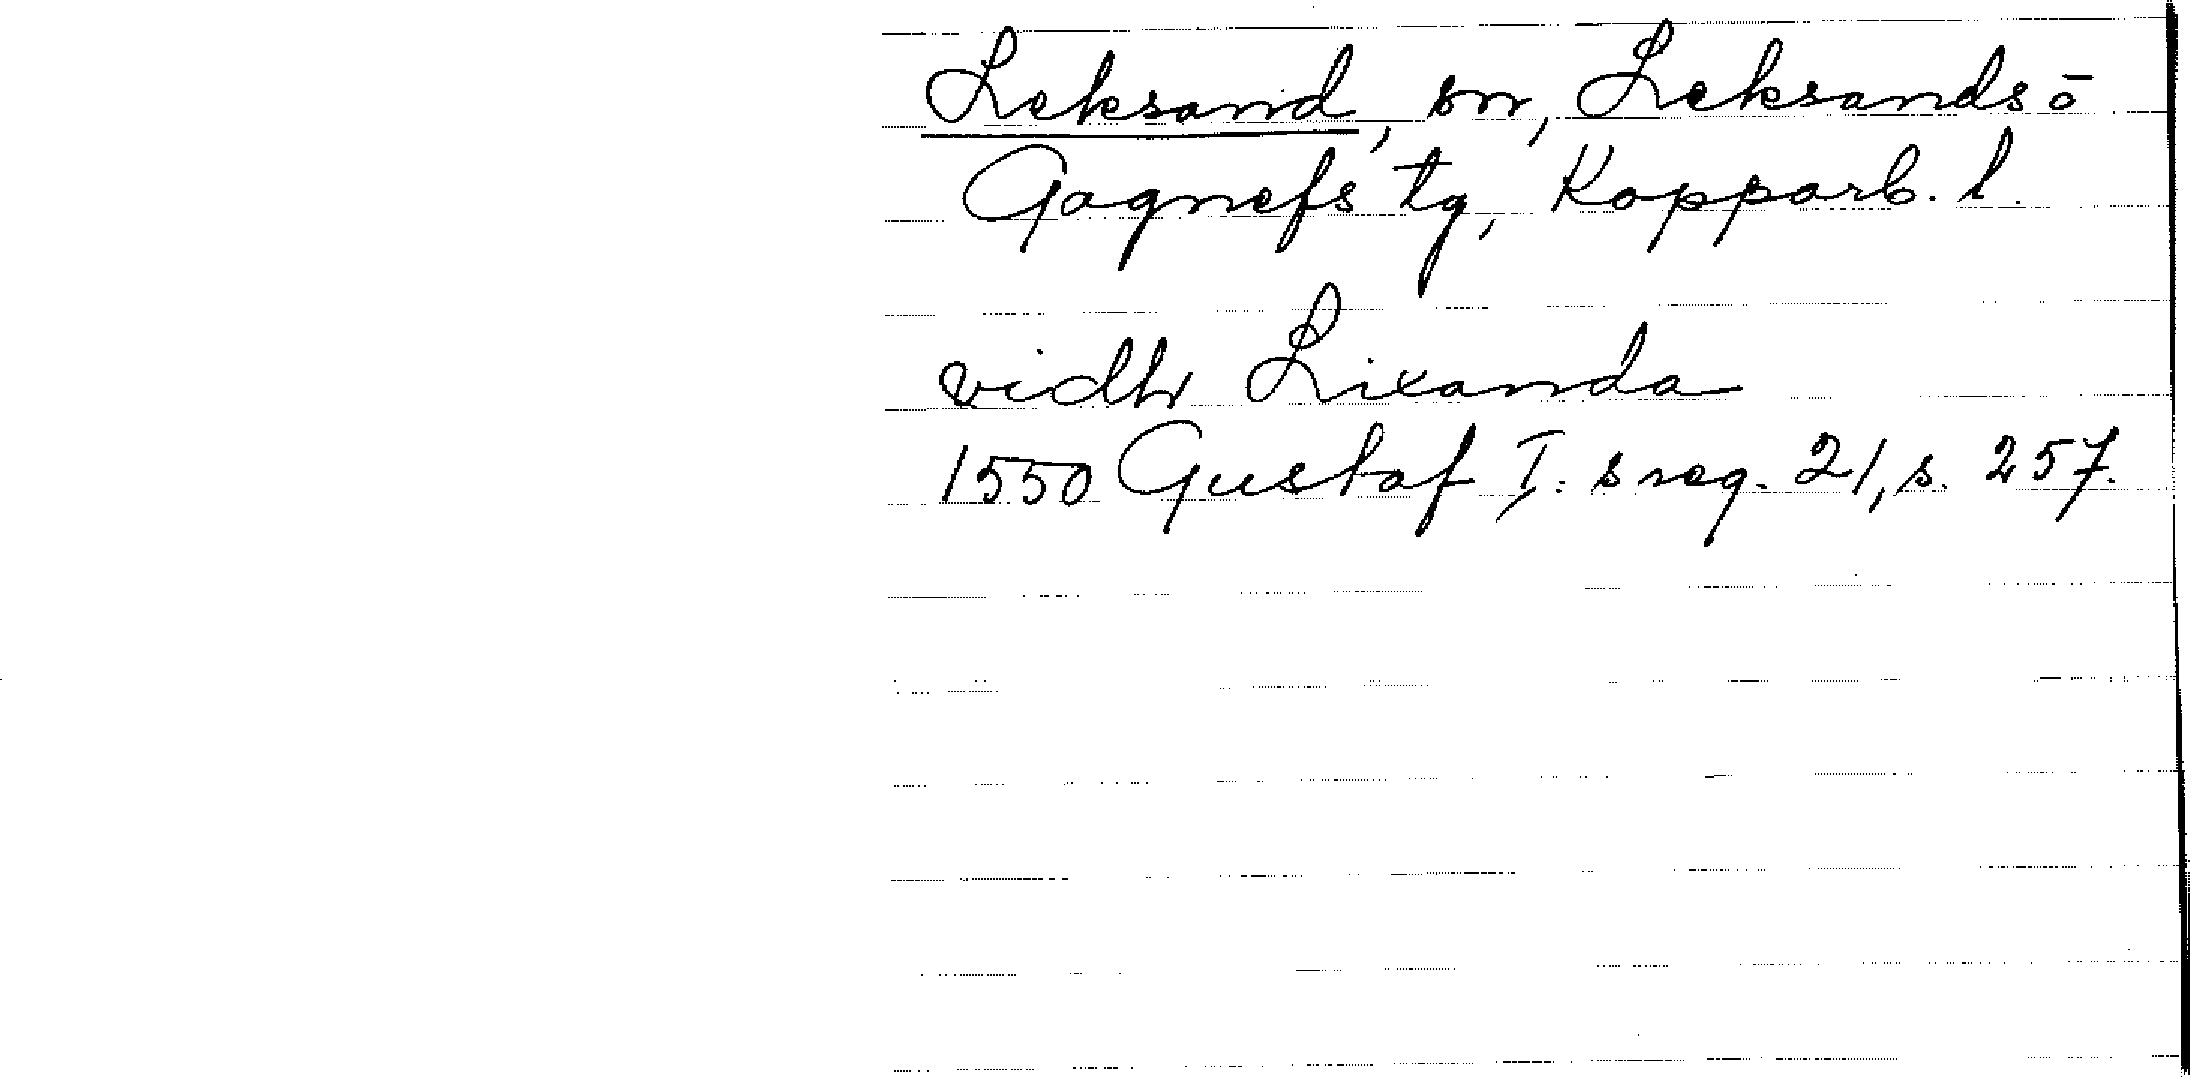 Leksand, sn, Leksands o
Gagnefs tg, Kopparb. l.
vidh Lixanda
1550 Gustaf I:s reg. 21, s. 257.